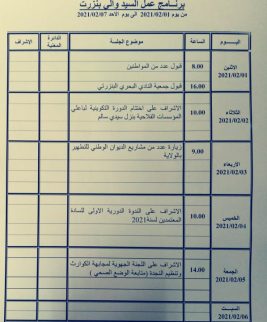 برنامج عمل السيد والي بنزرت
من يوم 2021/02/01 الى يوم الاحد 2021/02/07
اليــــوم الساعة موضوع الجلسة الدائرة المعنية الاشراف
الاثنين 2021/02/01
8.00 قبول عدد من المواطنين
16.00 قبول جمعية النادي البحري البنزرتي
الثلاثاء 2021/02/02
10.00 الاشراف على اختتام الدورة التكوينية لباعثي
المؤسسات الفلاحية بنزل سيدي سالم
الاربعاء 2021/02/03
9.00 زيارة عدد من مشاريع الديوان الوطني للتطهير
بالولاية
الخميس 2021/02/04
10.00 الاشراف على الندوة الدورية الاولى للسادة
المعتمدين لسنة 2021
الجمعة 2021/02/05
14.00 الاشراف على اللجنة الجهوية لمجابهة الكوارث
وتنظيم النجدة (متابعة الوضع الصحي )
السبــت 2021/02/06